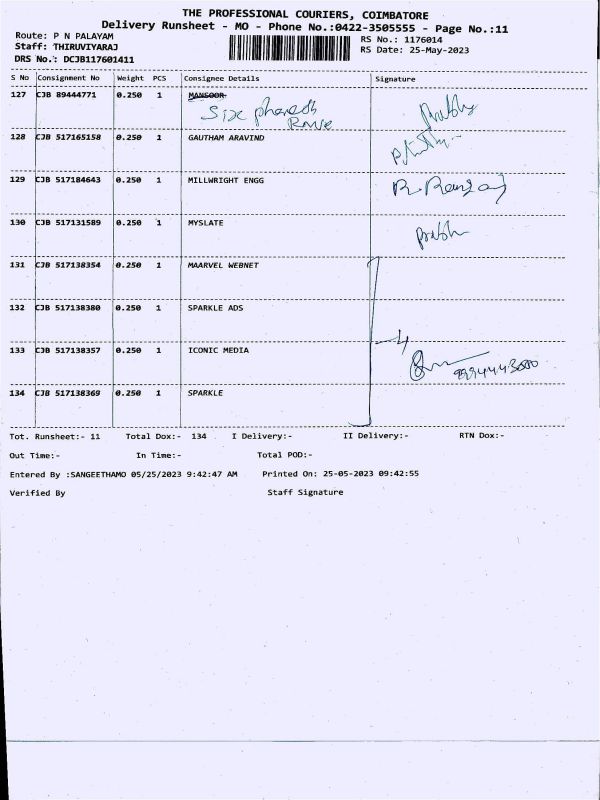 THE PROFESSIONAL COURIERS, COIMBATORE
Delivery Runsheet - MO - Phone No.:0422-3505555 - Page No.:11
Route: P N PALAYAM
RS No.: 1176014
Staff: THIRUVIYARAJ
RS Date: 25-May-2023
DRS No.: DCJB117601411
S No Consignment No Weight PCS Consignee Details Signature
127 CJB 89444771 0.250 1 MANSOOR
Six
128 CJB 517165158 0.250 1 GAUTHAM ARAVIND
129 CJB 517184643 0.250 1 MILLWRIGHT ENGG
130 CJB 517131589 0.250 1 MYSLATE
131 CJB 517138354 0.250 1 MAARVEL WEBNET
132 CJB 517138380 0.250 1 SPARKLE ADS
133 CJB 517138357 0.250 1 ICONIC MEDIA
4
134 CJB 517138369 0.250 1 SPARKLE
Tot. Runsheet:- 11 Total Dox:- 134 I Delivery:- II Delivery:- RTN Dox:-
Out Time:- In Time:- Total POD:-
Entered By :SANGEETHAMO 05/25/2023 9:42:47 AM Printed On: 25-05-2023 09:42:55
Verified By Staff Signature